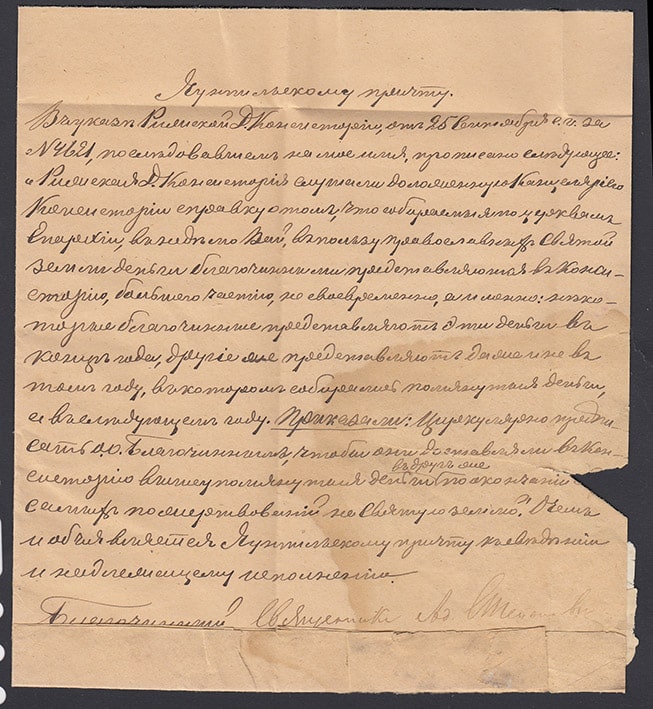 Яунпильскому причту.
Въ указѣ Рижской Д. Консисторіи, отъ 25 Сентября с. г. за
№ 4621, послѣдовавшемъ на мое имя, прописано слѣдующее:
„Рижская Д. Консисторія слушали доложенную Канцеляріею
Консисторіи справку о томъ, что собираемыя по церквамъ
Епархіи, въ недѣлю Вай, въ пользу православныхъ Святой
земли деньги благочинными представляются въ Конси-
сторію, большею частію, не своевременно, а именно: нѣко-
торые благочинные представляютъ эти деньги въ
концѣ года, другіе же представляютъ даже и не въ
томъ году, въ которомъ собирались помянутыя деньги,
а въ слѣдующемъ году. Приказали: Циркулярно предпи-
сать оо. Благочиннымъ, чтобы они доставляли въ Кон-
въ другъ же
систорію вышеупомянутыя деньги по окончаніи
самыхъ пожертвованій на Святую землю". О чемъ
и объявляется Яунпильскому причту къ свѣдѣнію
и надлежащему исполненію.
Благочинный Священникъ